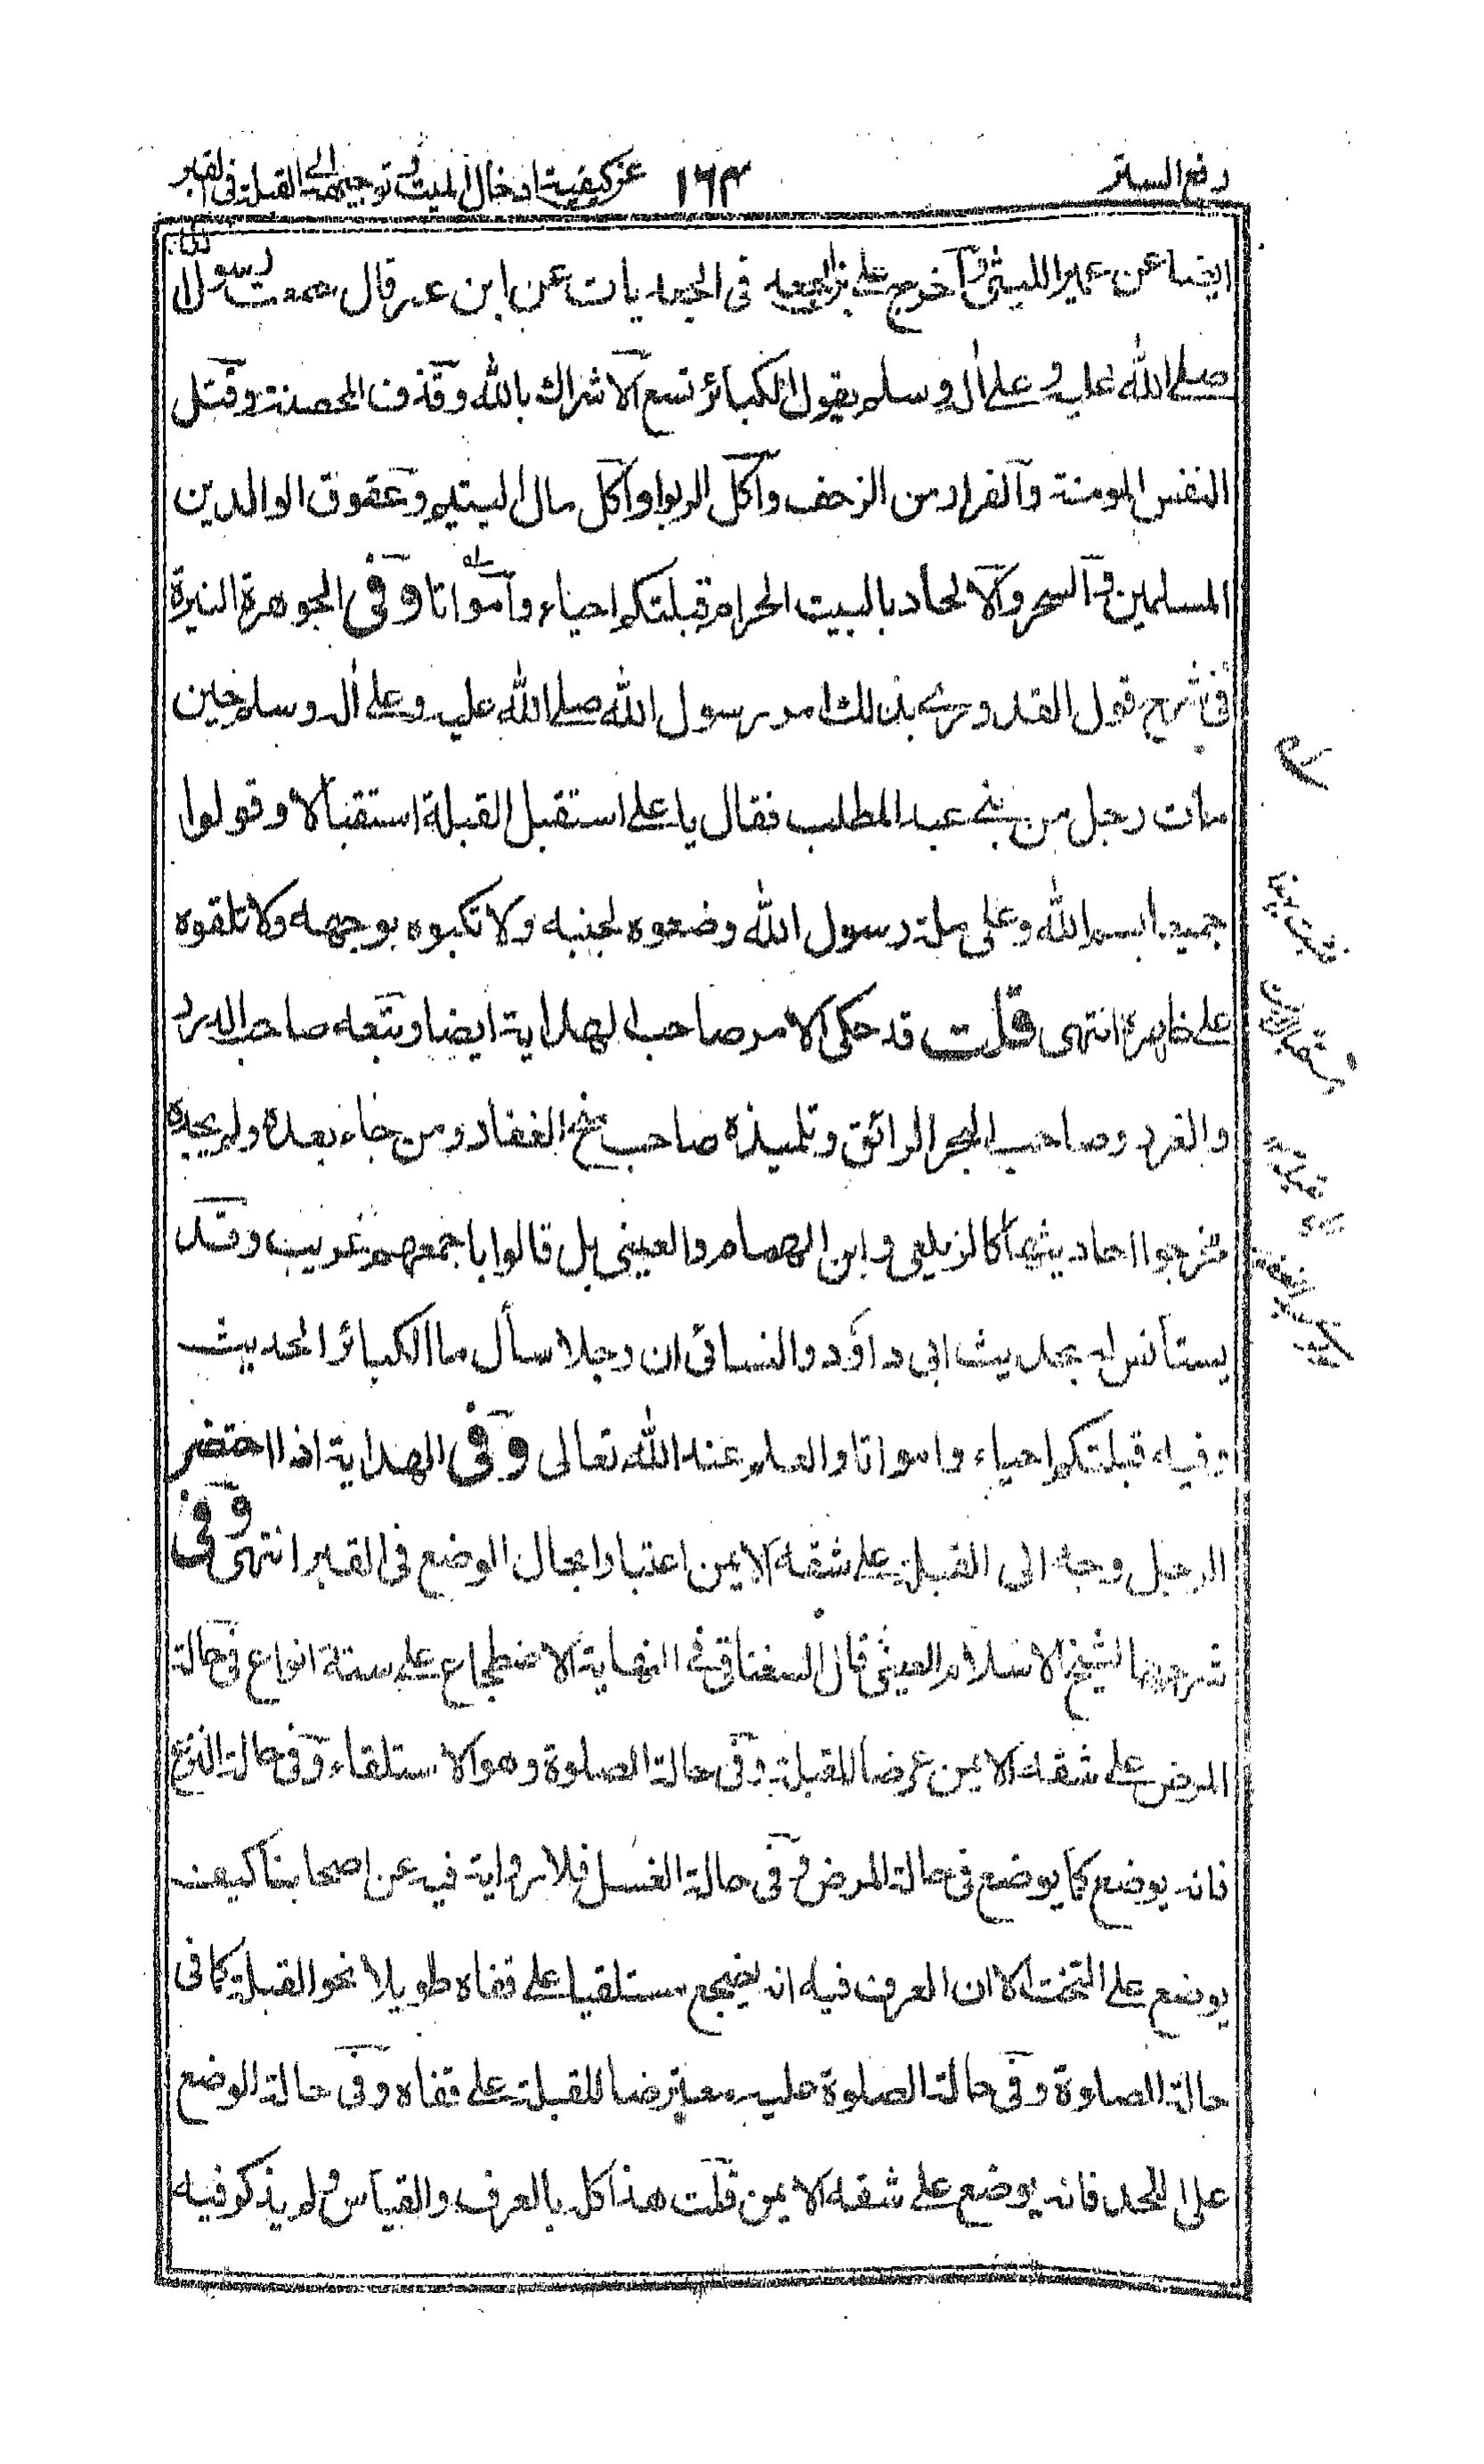 رفع الستر ١٦٣ عن كيفية ادخال الميت وتوجيهه الى القبلة فى القبر
ايضا عن عمير الليثى وآخرج على بن الجعد فى الجعديات عن ابن عمر قال سمعت رسول الله
صلے الله عليه وعلے اٰله وسلم يقول الكبائر تسع آلاشراك بالله وقذف المحصنة وقتل
النفس المومنة وآلفرار من الزحف وآكل الربوا وآكل مال اليتيم وعقوق الوالدين
المسلمين وآلسحر وآلالحاد بالبيت الحرام قبلتكم احياء وآمواتا وفى الجوهرة النيرة
فى شرح قول القدورے بذلك امر رسول الله صلے الله عليه وعلے اٰله وسلم حين
مات رجل من بنے عبد المطلب فقال يا علے استقبل القبلة استقبالا وقولوا
جميعا بسم الله وعلى ملة رسول الله وضعوه لجنبه ولا تكبوه بوجهه ولا تلقوه
علے ظهره انتهى قلت قد حكى الامر صاحب الهداية ايضا وتبعه صاحب الدرر
والغرر وصاحب البحر الرائق وتلميذه صاحب منح الغفار ومن جاء بعده ولم يجده
مخرجوا احاديثها كالزيلعى وابن الهمام والعينى بل قالوا باجمعهم غريب وقد
يستأنس له بحديث ابى داؤد والنسائى ان رجلا سأل ما الكبائر الحديث
وفيه قبلتكم احياء وامواتا والعلم عند الله تعالى وفى الهداية اذا احتضر
الرجل وجه الى القبلة علے شقه الايمن اعتبارا بحال الوضع فى القبر انتهى وفى
شرحها لشيخ الاسلام العينى قال السغناقى فے النهاية الاضطجاع علے ستة انواع فى حالة
المرض علے شقه الايمن عرضا للقبلة وفى حالة الصلوة وهو الاستلقاء وفى حالة النزع
فانه يوضع كما يوضع فى حالة المرض وفى حالة الغسل فلا رواية فيه عن اصحابنا كيف
يوضع على التخت الا ان العرف فيه انه يضجع مستلقيا علے قفاه طويلا نحو القبلة كما فى
حالة الصلوة وفى حالة الصلوة عليه معترضا للقبلة علے قفاه وفى حالة الوضع
على اللحد فانه يوضع علے شقه الايمن قلت هذا كله بالعرف والقياس ولم يذكر فيه